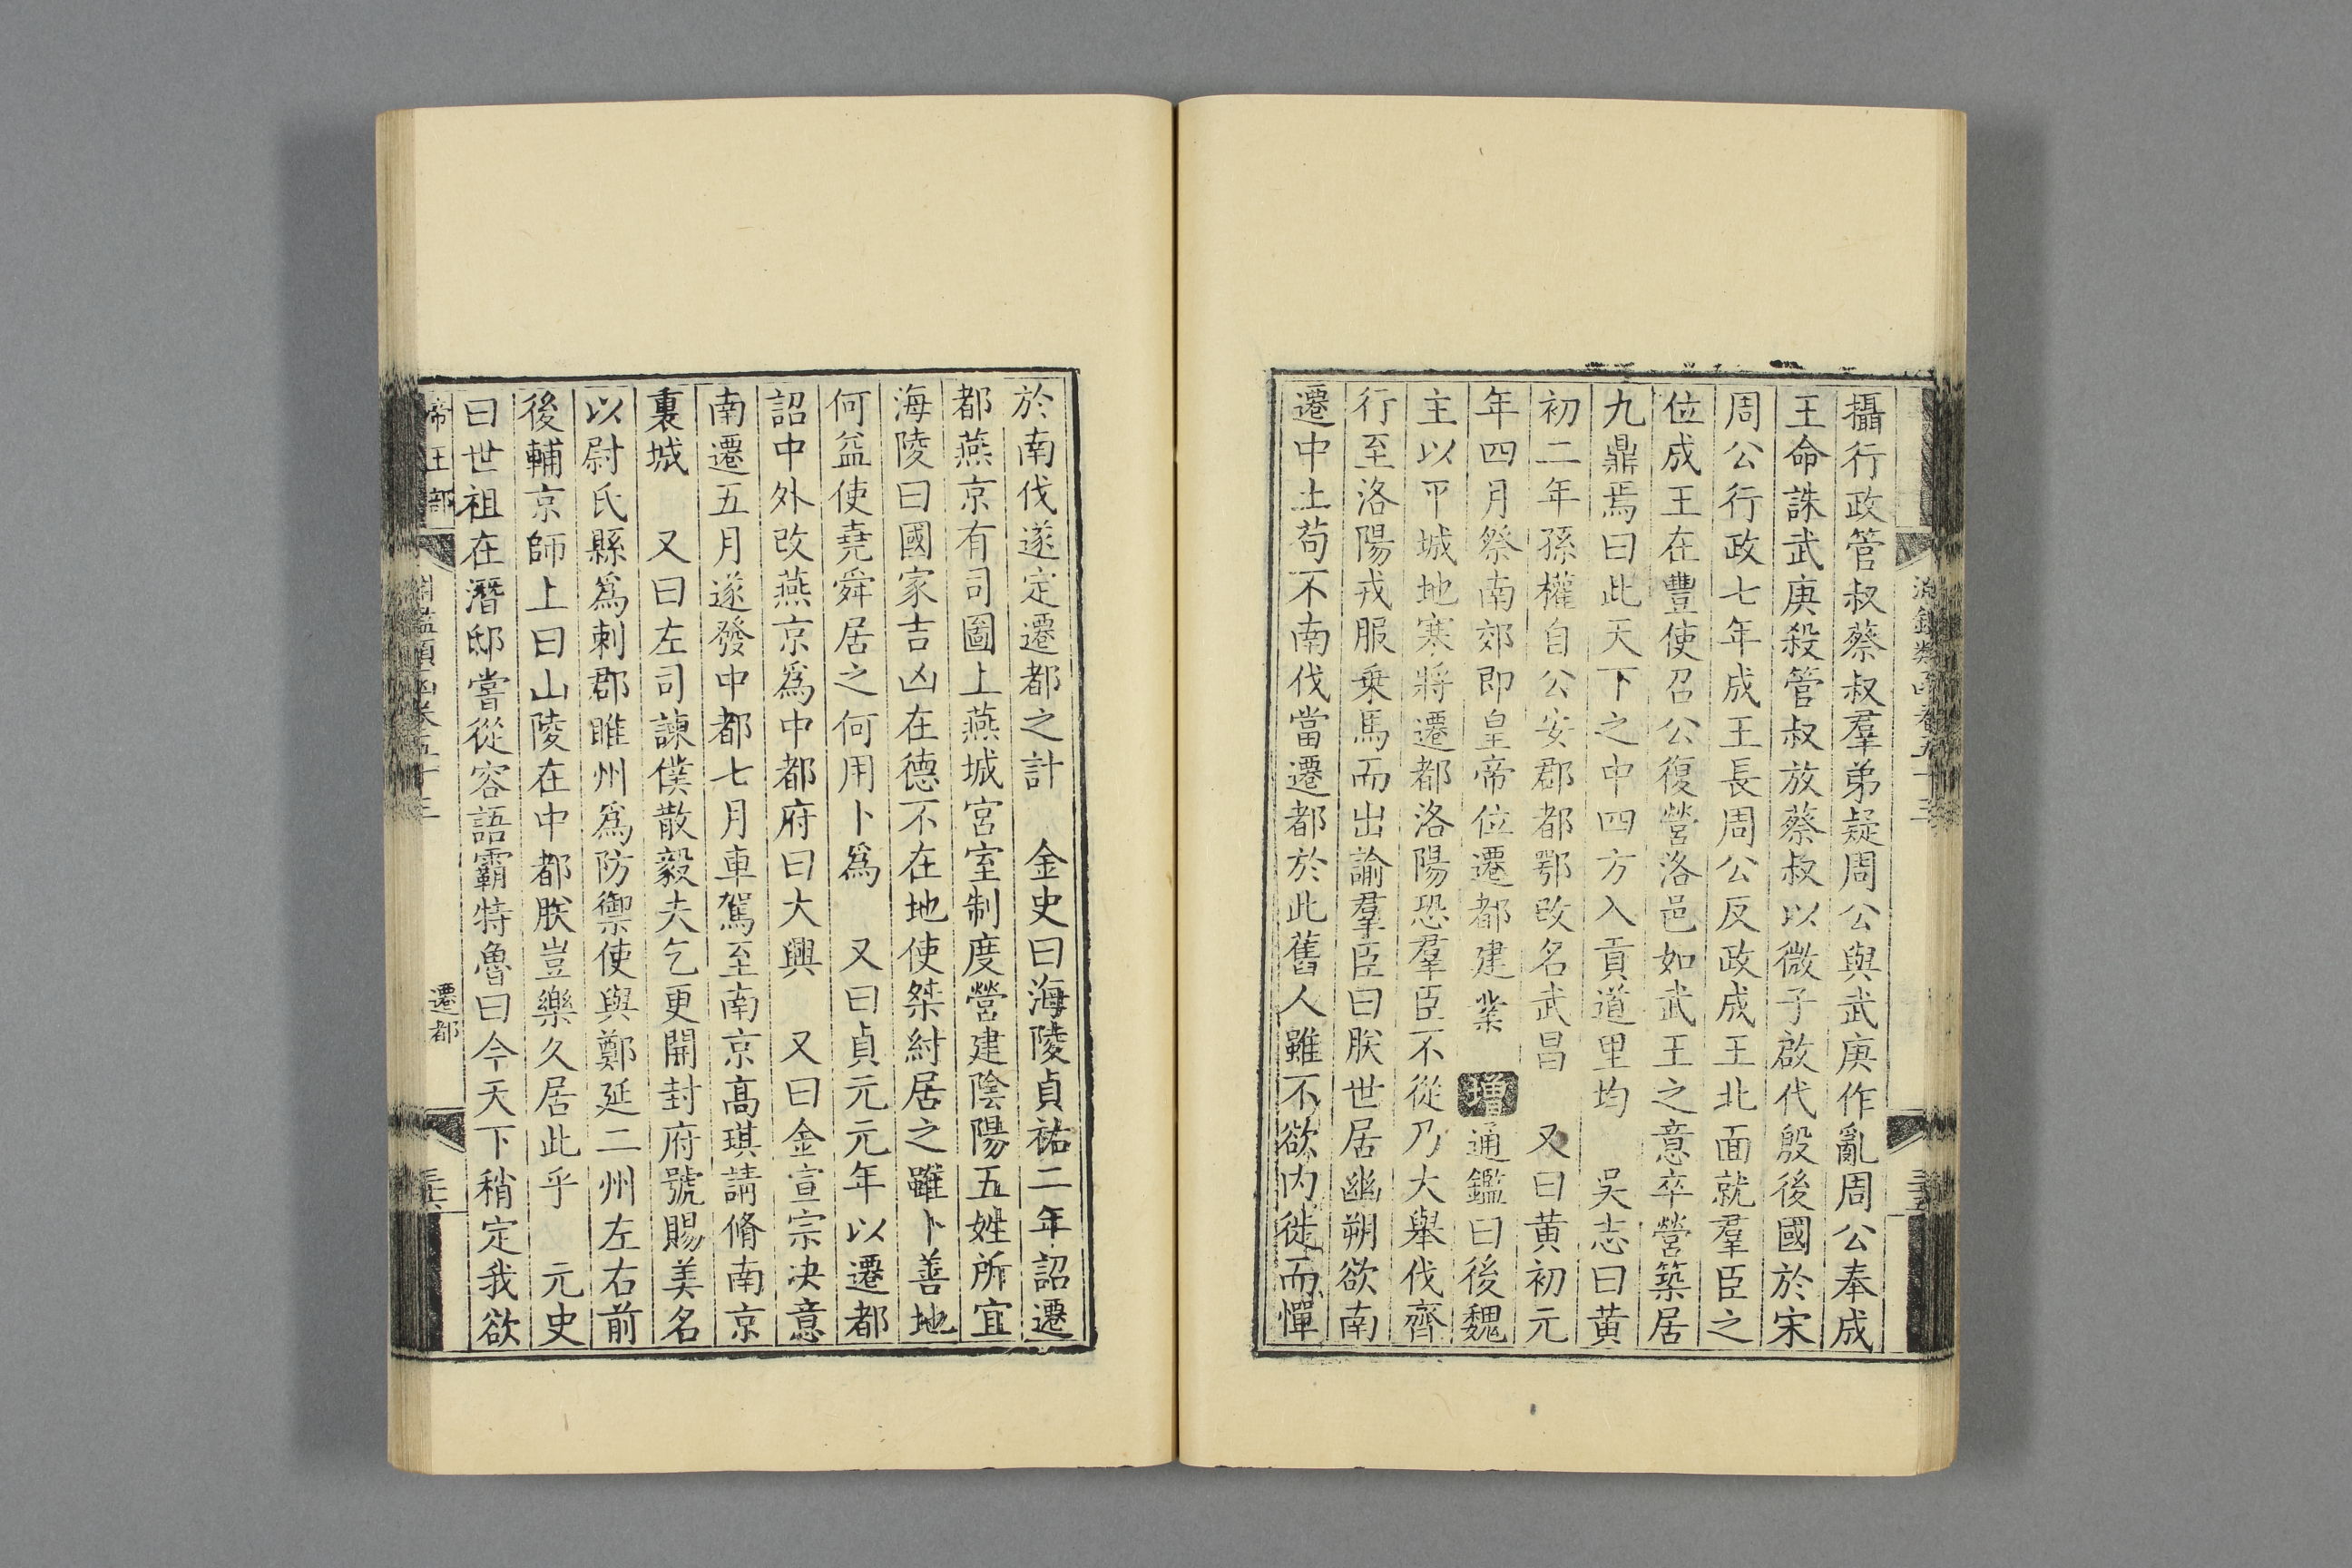 攝行政管叔蔡叔羣弟疑周公與武庚作亂周公奉成
王命誅武庚殺管叔放蔡叔以微子啟代殷後國於宋
周公行政七年成王長周公反政成王北面就羣臣之
位成王在豐使召公復營洛邑如武王之意卒營築居
九鼎焉曰此天下之中四方入貢道里均　吳志曰黃
初二年孫權自公安郡都鄂改名武昌　又曰黃初元
年四月祭南郊即皇帝位遷都建業　增通鑑曰後魏
主以平城地寒將遷都洛陽恐羣臣不從乃大舉伐齊
行至洛陽戎服乗馬而出諭羣臣曰朕世居幽朔欲南
遷中土茍不南伐當遷都於此舊人雖不欲内徙而憚
於南伐遂定遷都之計　金史曰海陵貞祐二年詔遷
都燕京有司圖上燕城宮室制度營建陰陽五姓所宜
海陵曰國家吉凶在德不在地使桀紂居之雖卜善地
何益使堯舜居之何用卜爲　又曰貞元元年以遷都
詔中外改燕京爲中都府曰大興　又曰金宣宗决意
南遷五月遂發中都七月車駕至南京高琪請脩南京
裏城　又曰左司諫僕散毅夫乞更開封府號賜美名
以尉氏縣爲刺郡睢州爲防禦使與鄭延二州左右前
後輔京師上曰山陵在中都朕豈樂久居此乎　元史
曰世祖在潛邸嘗從容語霸特魯曰今天下稍定我欲
帝王部
淵鑑類函卷五十三
遷都